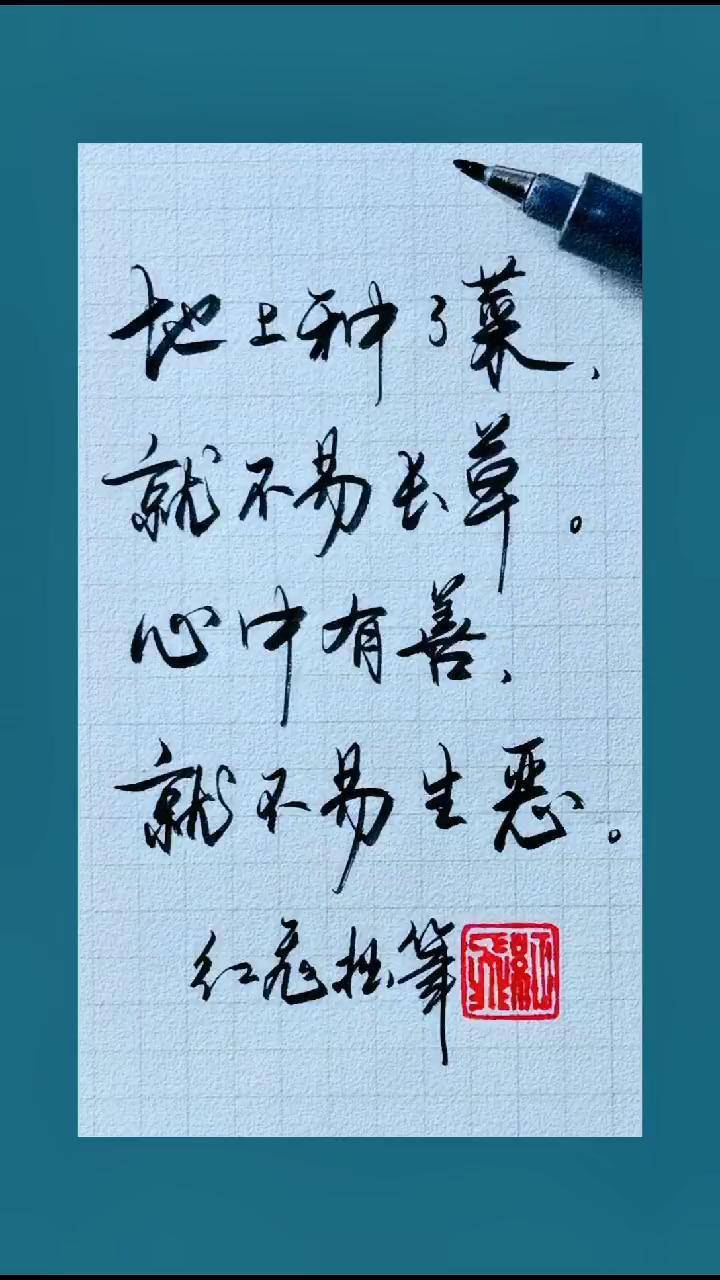 地上种了菜、
就不易长草。
心中有善、
就不易生恶。
红飞拙笔